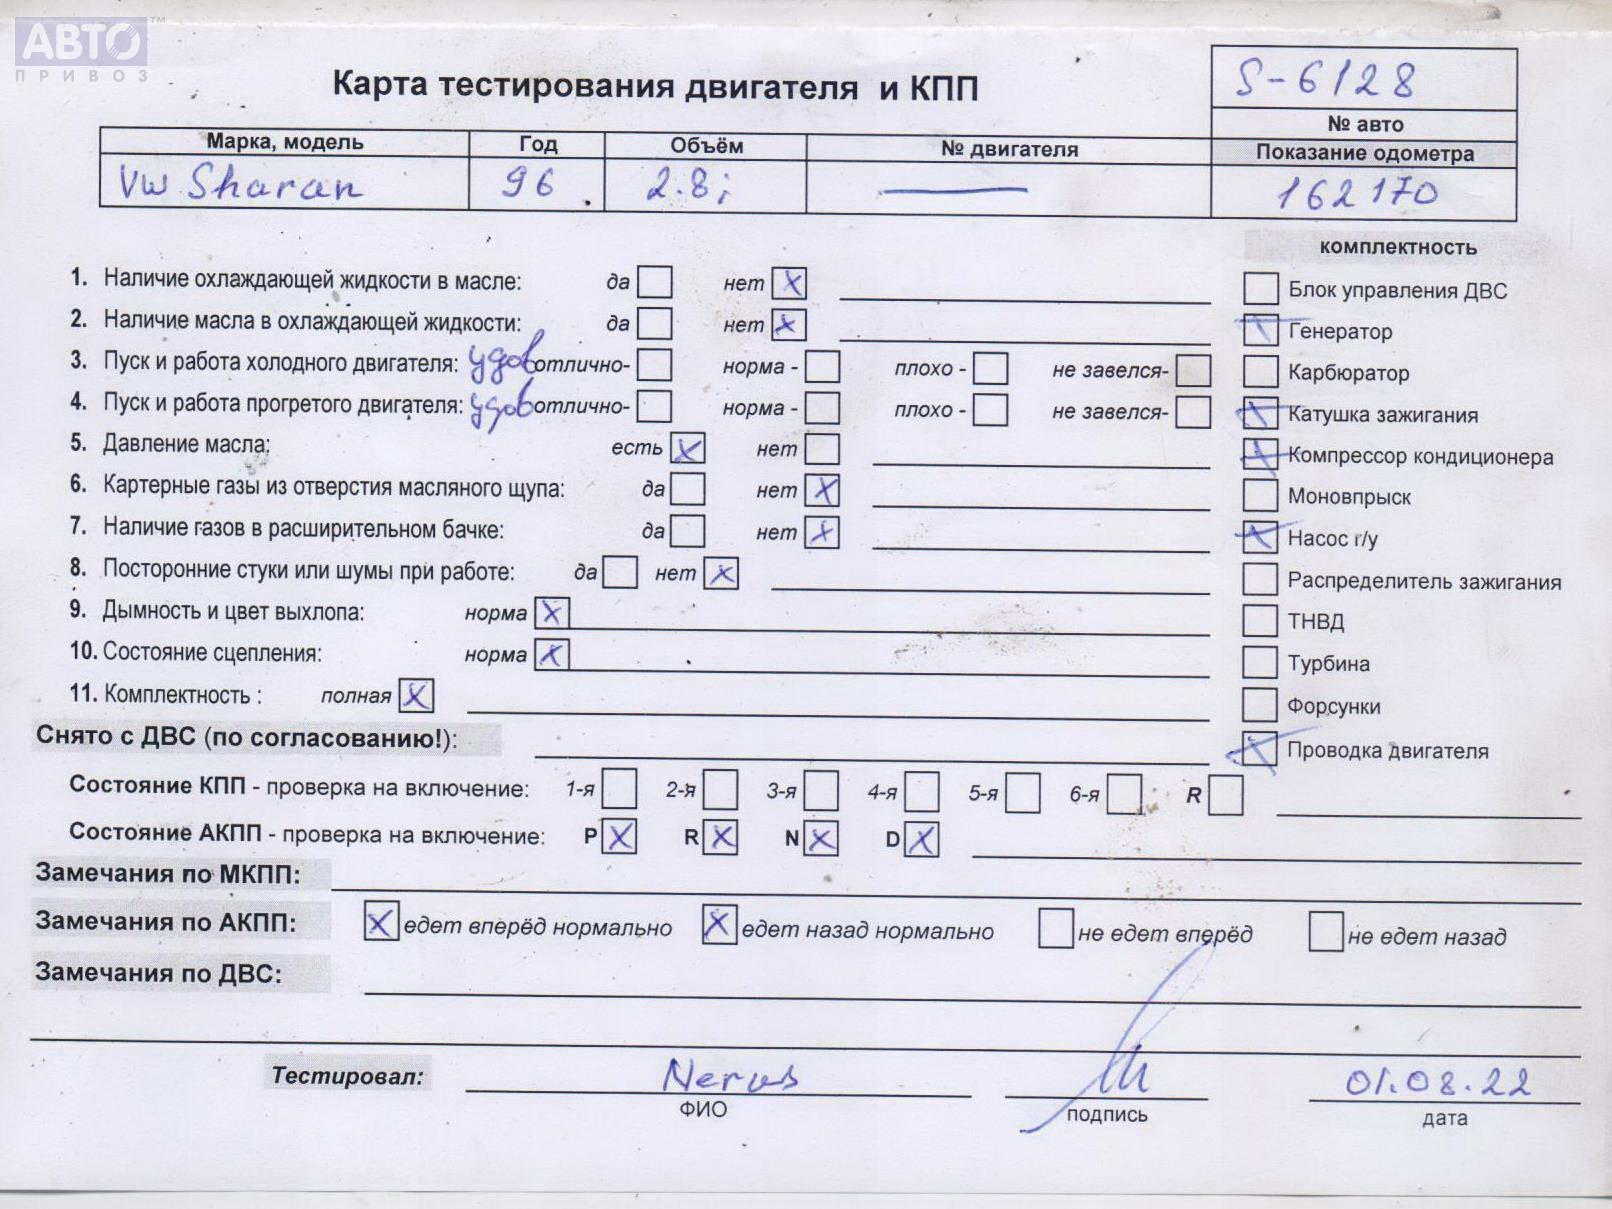 АВТО™
ПРИВОЗ
Карта тестирования двигателя и КПП
S-6128
№ авто
Марка, модель Год Объём № двигателя Показание одометра
VW Sharan 96 2.8i — 162170
комплектность
1. Наличие охлаждающей жидкости в масле: да нет x
Блок управления ДВС
2. Наличие масла в охлаждающей жидкости: да нет x
Генератор
3. Пуск и работа холодного двигателя: удов отлично- норма - плохо - не завелся-
Карбюратор
4. Пуск и работа прогретого двигателя: удов отлично- норма - плохо - не завелся-
Катушка зажигания
5. Давление масла: есть x нет
Компрессор кондиционера
6. Картерные газы из отверстия масляного щупа: да нет x
Моновпрыск
7. Наличие газов в расширительном бачке: да нет x
Насос г/у
8. Посторонние стуки или шумы при работе: да нет x
Распределитель зажигания
9. Дымность и цвет выхлопа: норма x
ТНВД
10. Состояние сцепления: норма x
Турбина
11. Комплектность : полная x
Форсунки
Снято с ДВС (по согласованию!):
Проводка двигателя
Состояние КПП - проверка на включение: 1-я 2-я 3-я 4-я 5-я 6-я R
Состояние АКПП - проверка на включение: P x R x N x D x
Замечания по МКПП:
Замечания по АКПП: x едет вперёд нормально x едет назад нормально не едет вперёд не едет назад
Замечания по ДВС:
Тестировал: Nerus 01.08.22
ФИО подпись дата